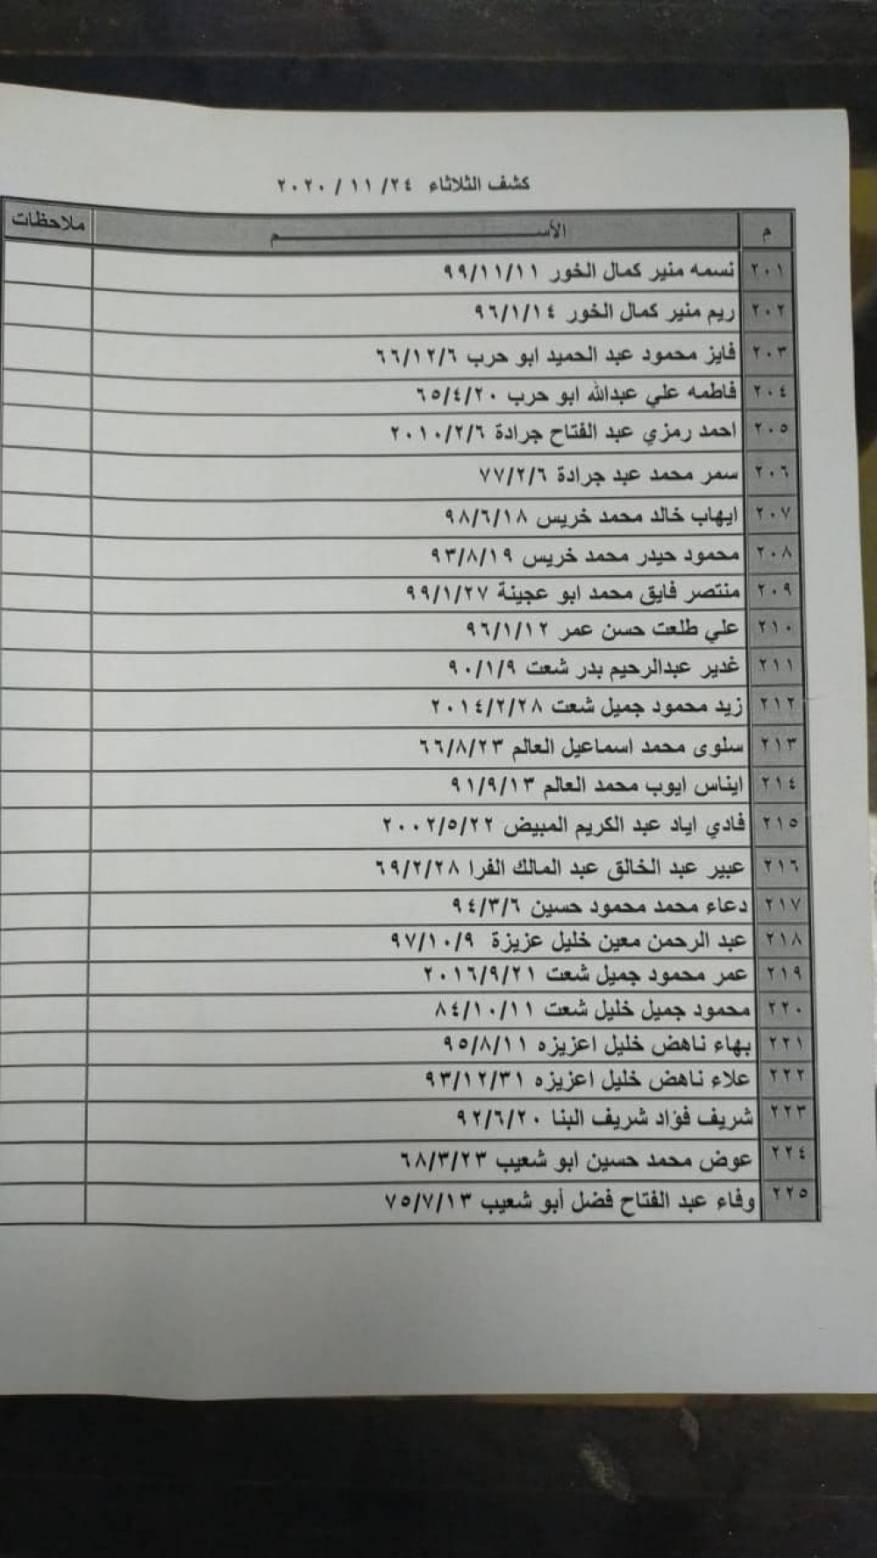 كشف الثلاثاء ٢٤/ ١١ / ٢٠٢٠
م الأســـــــــم ملاحظات
٢٠١ نسمه منير كمال الخور ٩٩/١١/١١
٢٠٢ ريم منير كمال الخور ٩٦/١/١٤
٢٠٣ فايز محمود عبد الحميد ابو حرب ٦٦/١٢/٦
٢٠٤ فاطمه علي عبدالله ابو حرب ٦٥/٤/٢٠
٢٠٥ احمد رمزي عبد الفتاح جرادة ٢٠١٠/٢/٦
٢٠٦ سمر محمد عبد جرادة ٧٧/٢/٦
٢٠٧ ايهاب خالد محمد خريس ٩٨/٦/١٨
٢٠٨ محمود حيدر محمد خريس ٩٣/٨/١٩
٢٠٩ منتصر فايق محمد ابو عجينة ٩٩/١/٢٧
٢١٠ علي طلعت حسن عمر ٩٦/١/١٢
٢١١ غدير عبدالرحيم بدر شعت ٩٠/١/٩
٢١٢ زيد محمود جميل شعت ٢٠١٤/٢/٢٨
٢١٣ سلوى محمد اسماعيل العالم ٦٦/٨/٢٣
٢١٤ ايناس ايوب محمد العالم ٩١/٩/١٣
٢١٥ فادي اياد عبد الكريم المبيض ٢٠٠٢/٥/٢٢
٢١٦ عبير عبد الخالق عبد المالك الفرا ٦٩/٢/٢٨
٢١٧ دعاء محمد محمود حسين ٩٤/٣/٦
٢١٨ عبد الرحمن معين خليل عزيزة ٩٧/١٠/٩
٢١٩ عمر محمود جميل شعت ٢٠١٦/٩/٢١
٢٢٠ محمود جميل خليل شعت ٨٤/١٠/١١
٢٢١ بهاء ناهض خليل اعزيزه ٩٥/٨/١١
٢٢٢ علاء ناهض خليل اعزيزه ٩٣/١٢/٣١
٢٢٣ شريف فؤاد شريف البنا ٩٢/٦/٢٠
٢٢٤ عوض محمد حسين ابو شعيب ٦٨/٣/٢٣
٢٢٥ وفاء عبد الفتاح فضل أبو شعيب ٧٥/٧/١٣